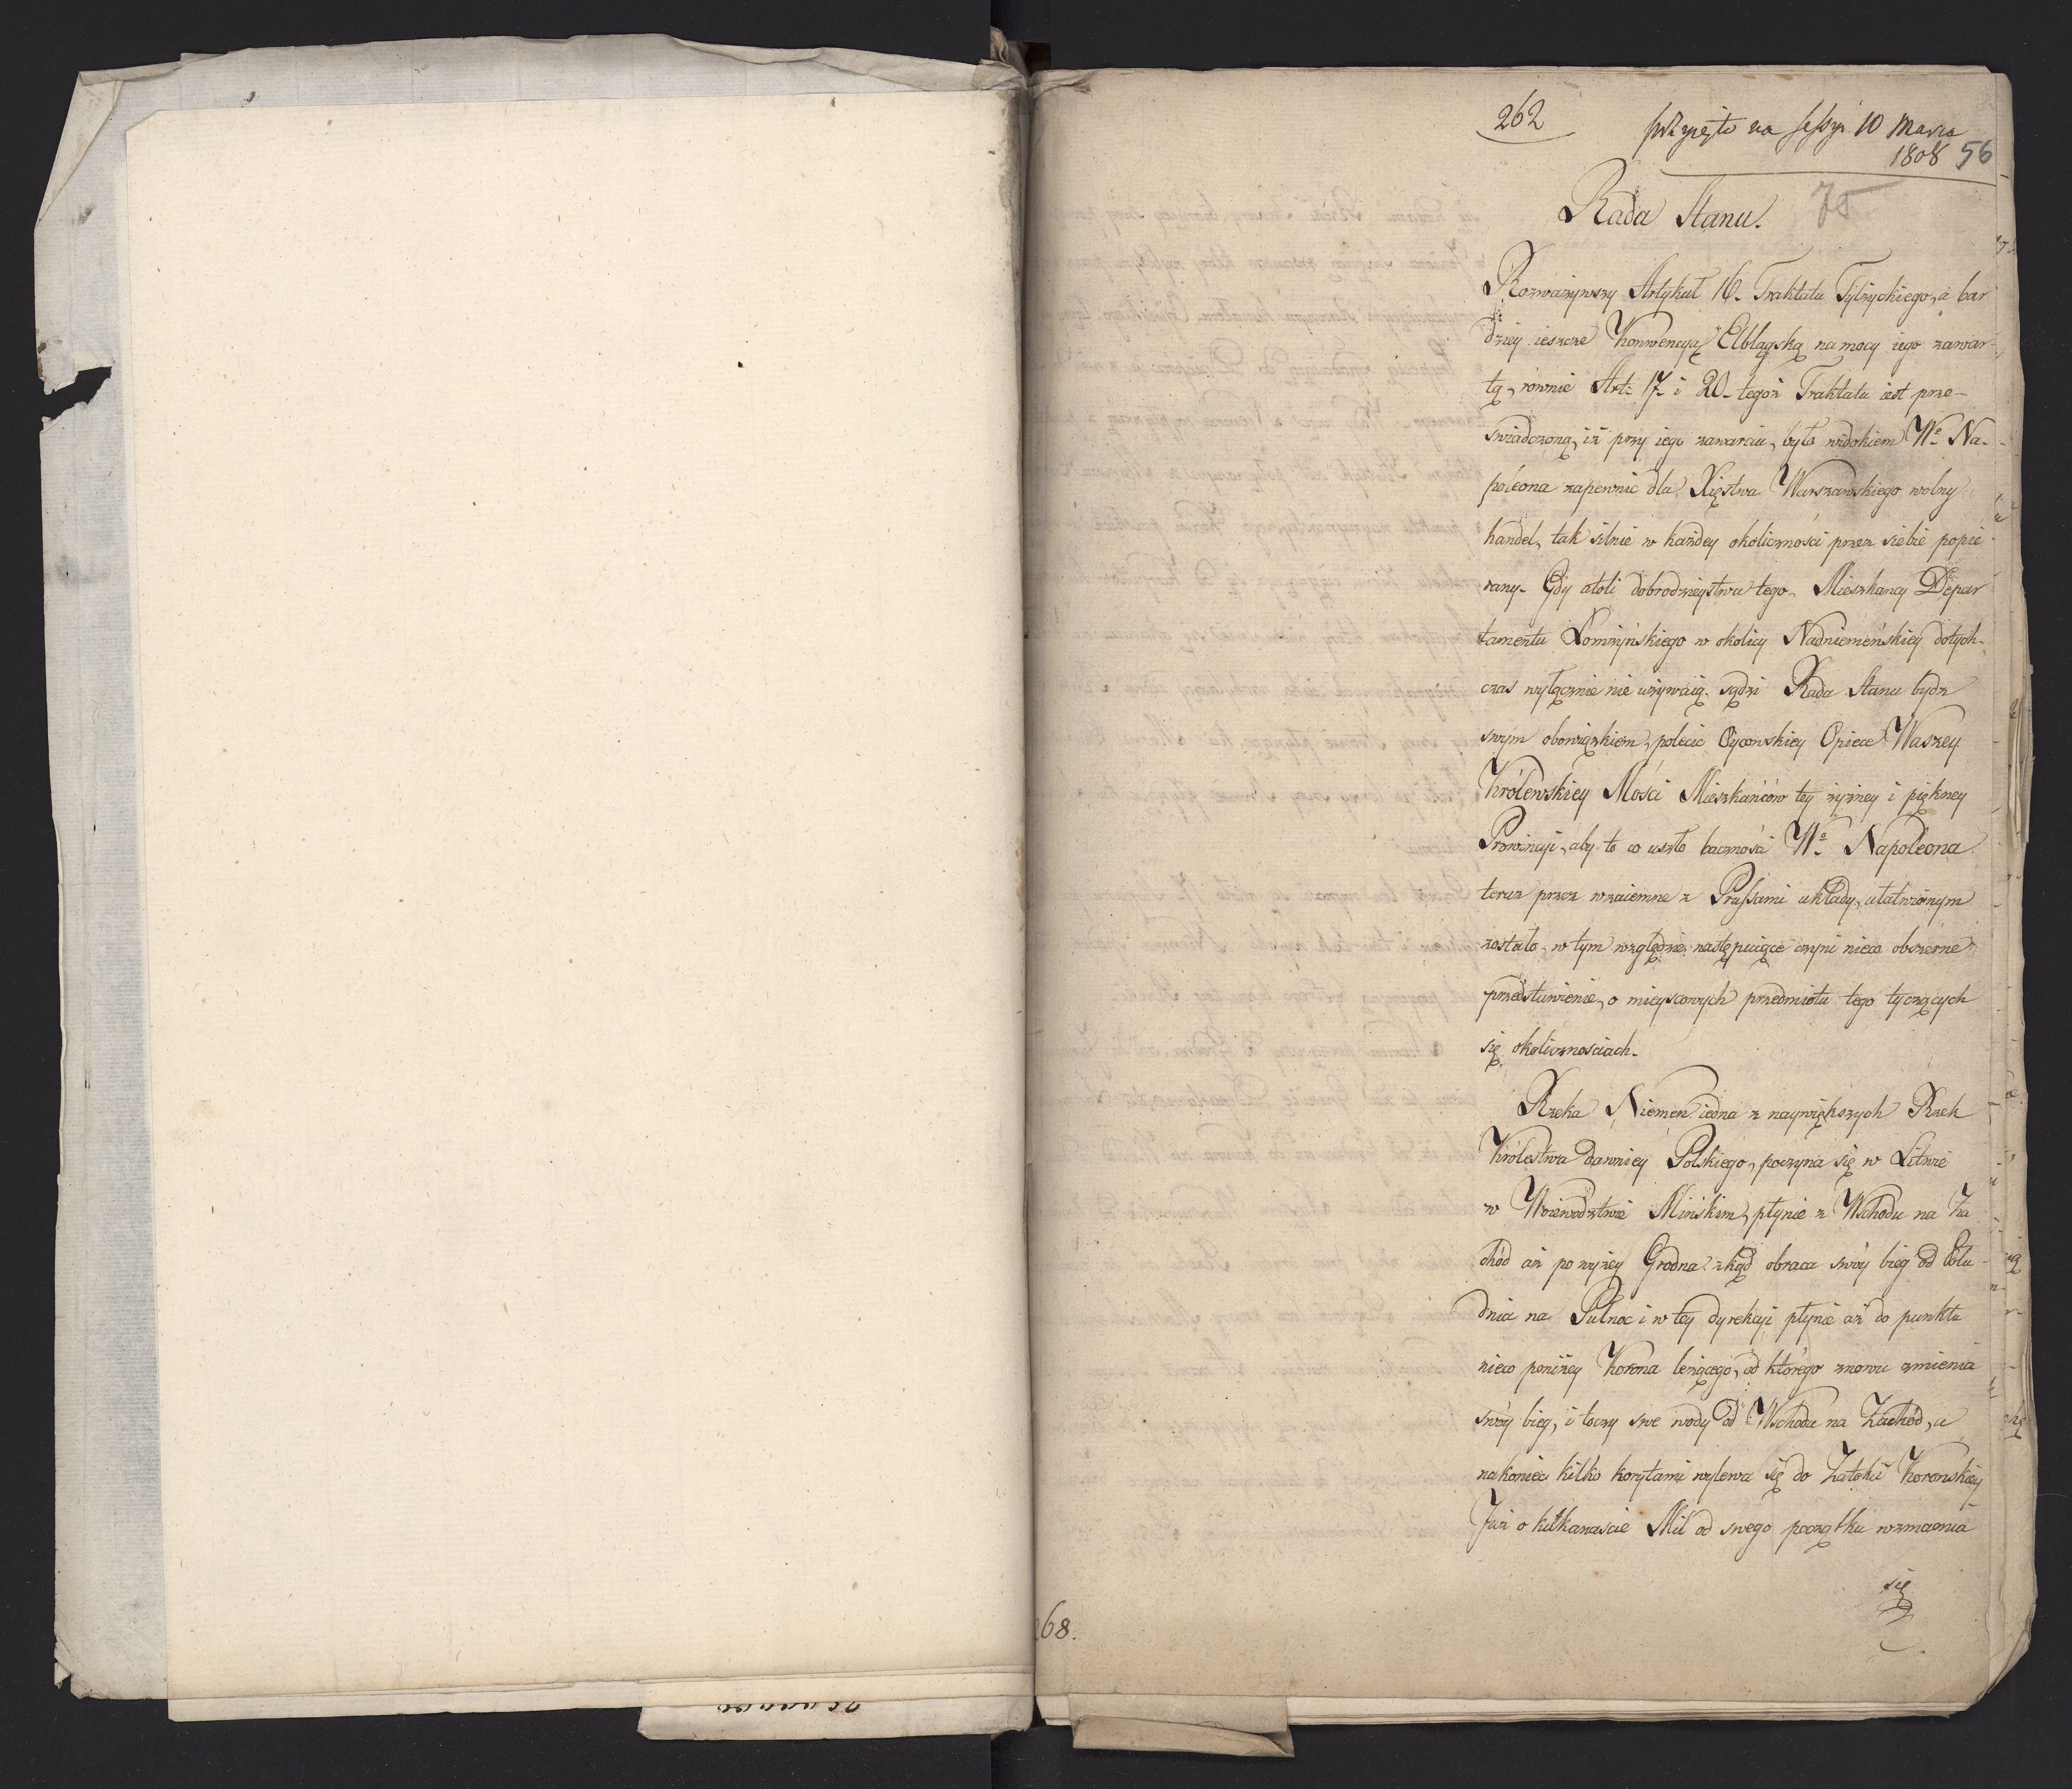 262
przyięto na sessyi 10 Marca
1808 56
75
Rada Stanu.
Rozważywszy Artykuł 16. Traktatu Tylżyckiego, a bar
dziey ieszcze Konwencyą Elbląską na mocy iego zawar-
tą, rownie Art: 17. i 20. tegoż Traktatu iest prze-
świadczoną, iż przy iego zawarciu, było widokiem We. Na-
póleona zapewnić dla Xięstwa Warszawskiego wolny
handel, tak silnie w każdey okoliczności przez siebie popie
rany. Gdy atoli dobrodzieystwa tego, Mieszkańcy Depar
tamentu Łomżyńskiego w okolicy Nadniemeńskiey dotych-
czas wyłącznie nie używaią. sądzi Rada Stanu bydz
swym obowiązkiem, polecić Oycowskiey Opiece Waszey
Królewskiey Mości Mieszkańców tey żyzney i piękney
Prowincyi, aby to co uszło baczności We. Napoleona
teraz przez wzaiemne z Prussami układy, ułatwionym
zostało, w tym względzie następuiące czyni nieco obszerne
przedstawienie, o mieyscowych przedmiotu tego tyczących
się okolicznościach.
Rzeka Niemen iedna z naywiększych Rzek
Królestwa dawniey Polskiego, poczyna się w Litwie
w Woiewodztwie Mińskim, płynie z Wschodu na Za
chód aż powyżey Grodna. zkąd obraca swóy bieg od Połu-
dnia na Pułnoc i w tey dyrekcyi płynie aż do punktu
nieco poniżey Kowna leżącego, od którego znowu zmienia
swóy bieg, i toczy swe wody od Wschodu na Zachód, a
nakoniec kilko korytami wylewa się do Zatoki Koronskiey
Już o kilkanaście Mil od swego początku wzmacnia
się
68.